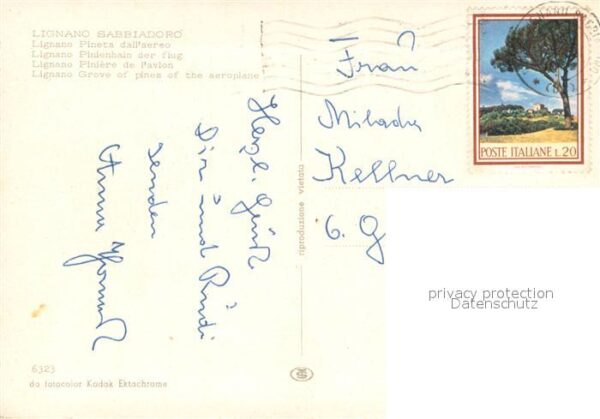 LIGNANO SABBIADORO
Lignano Pineta dall'aereo
Lignano Pinienhain der flug
Lignano Pinière de l'avion
Lignano Grove of pines of the aeroplane
POSTE ITALIANE L.20
Frau
Kellner
6. G
Herzl. Grüße
Dir und Rudi
senden
Anna
riproduzione vietata
privacy protection
Datenschutz
6323
da fotocolor Kodak Ektachrome